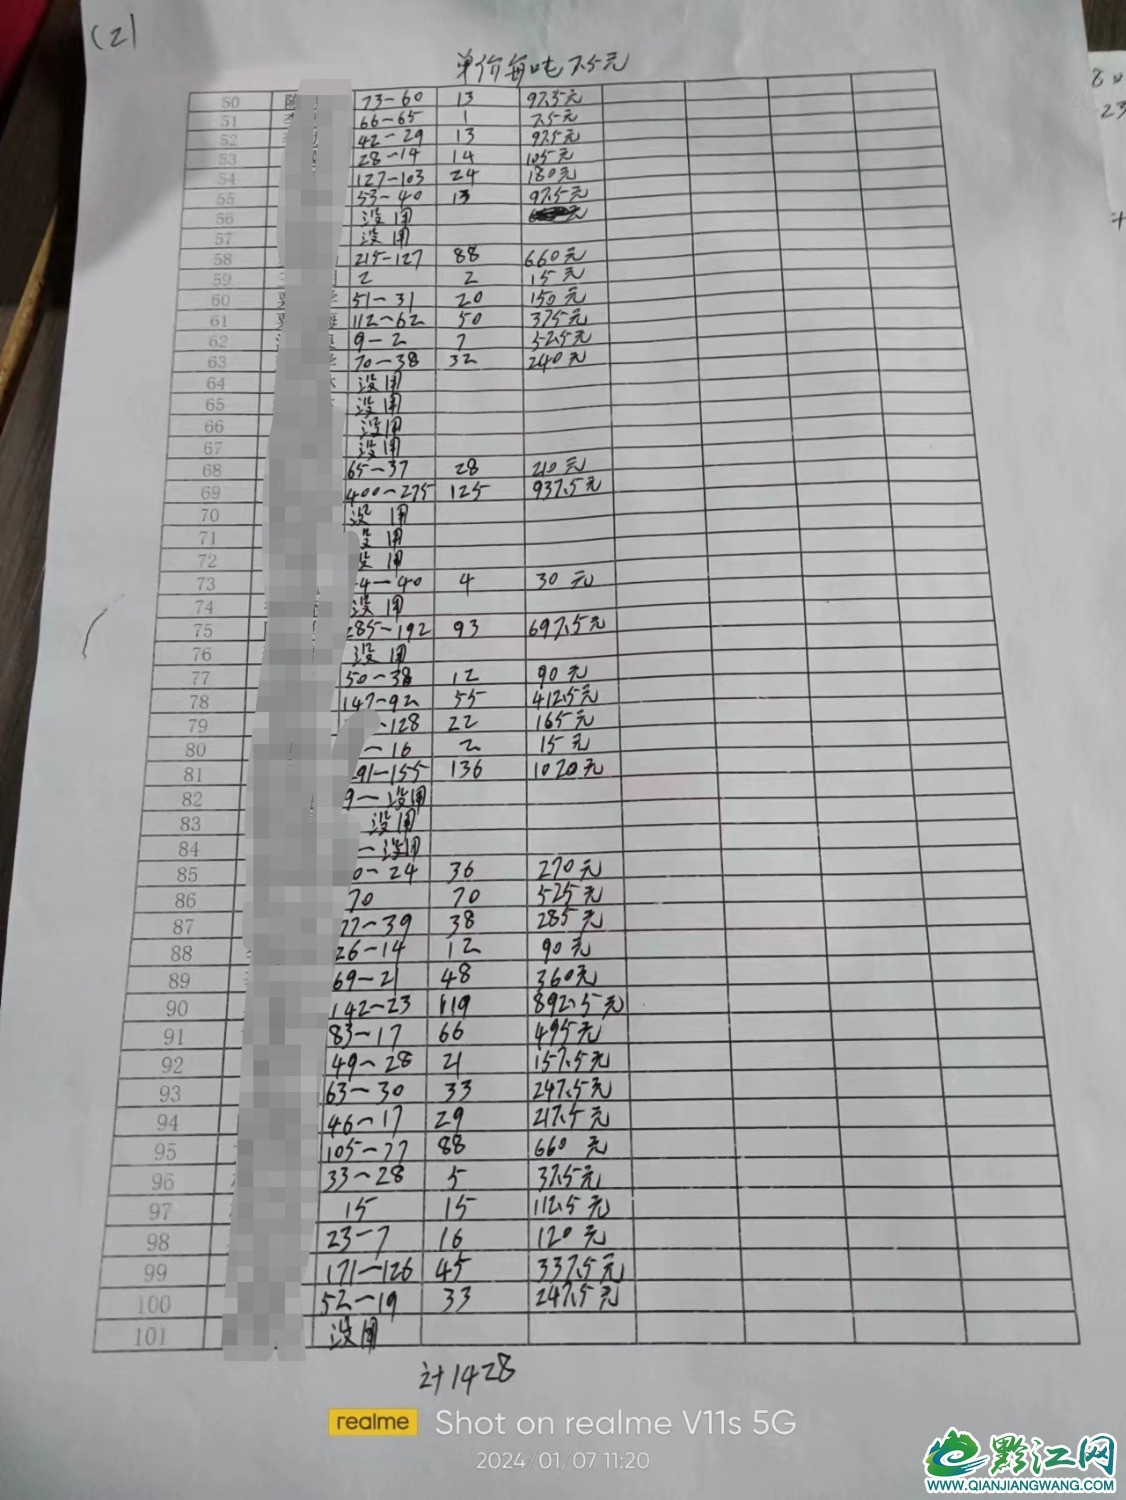 (2)
单价每吨7.5元
50 陈 73-60 13 97.5元
51 李 66-65 1 7.5元
52 42-29 13 97.5元
53 28-14 14 105元
54 127-103 24 180元
55 53-40 13 97.5元
56 没用 元
57 没用
58 215-127 88 660元
59 2 2 15元
60 51-31 20 150元
61 112-62 50 375元
62 9-2 7 52.5元
63 70-38 32 240元
64 没用
65 没用
66 没用
67 没用
68 65-37 28 210元
69 400-275 125 937.5元
70 没用
71 没用
72 没用
73 4-40 4 30元
74 没用
75 285-192 93 697.5元
76 没用
77 50-38 12 90元
78 147-92 55 412.5元
79 -128 22 165元
80 -16 2 15元
81 291-155 136 1020元
82 9-没用
83 没用
84 -没用
85 0-24 36 270元
86 70 70 525元
87 77-39 38 285元
88 26-14 12 90元
89 69-21 48 360元
90 142-23 119 892.5元
91 83-17 66 495元
92 49-28 21 157.5元
93 63-30 33 247.5元
94 46-17 29 217.5元
95 105-77 88 660元
96 33-28 5 37.5元
97 15 15 112.5元
98 23-7 16 120元
99 171-126 45 337.5元
100 52-19 33 247.5元
101 没用
计1428
realme Shot on realme V11s 5G
2024/01/07 11:20
黔江网
WWW.QIANJIANGWANG.COM